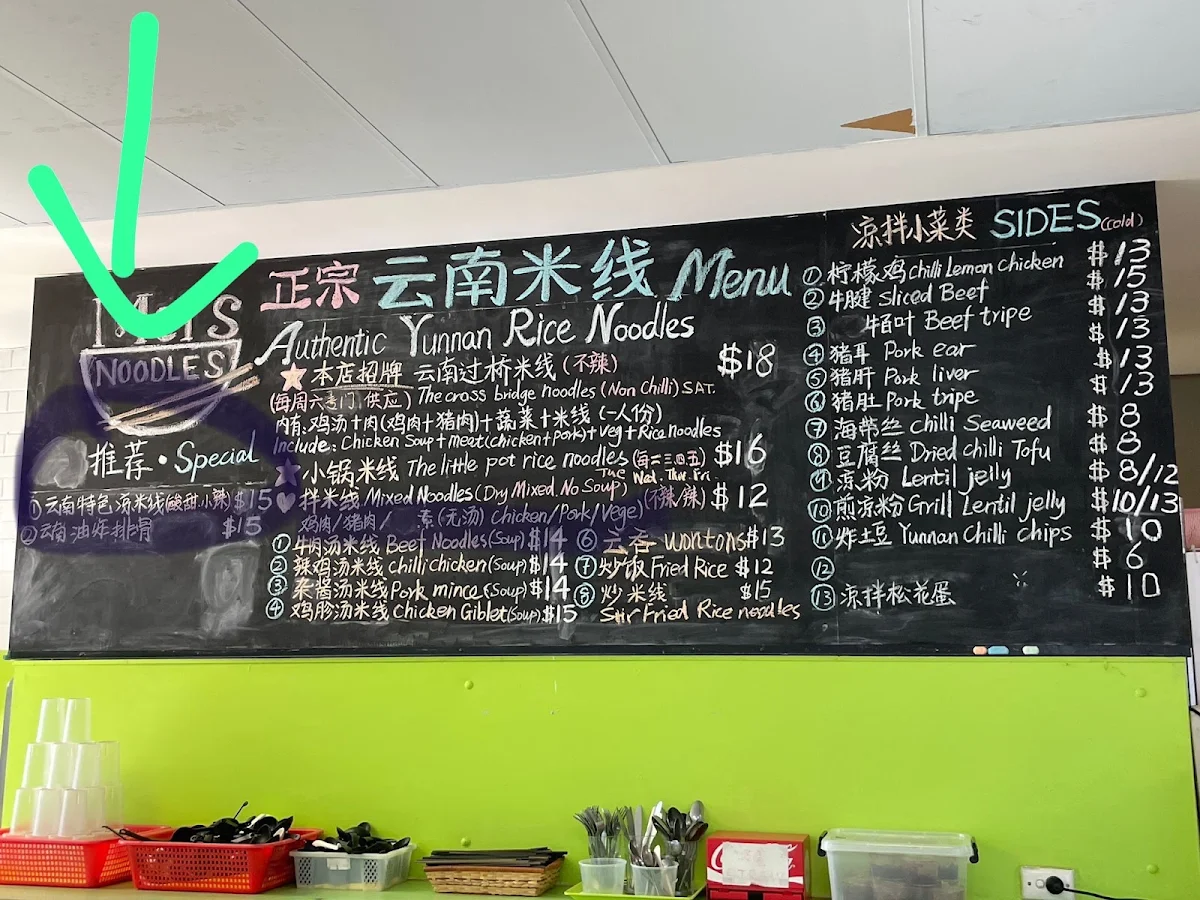 NOODLES
推荐·Special
①云南特色汤米线(酸甜小辣) $15
②云南油炸排骨 $15
正宗 云南米线 Menu
Authentic Yunnan Rice Noodles
本店招牌 云南过桥米线 (不辣) $18
(每周六专门供应) The cross bridge noodles (Non Chilli) SAT.
内有:鸡汤+肉(鸡肉+猪肉)+蔬菜+米线 (一人份)
Include: Chicken Soup+meat(chicken+pork)+veg+Rice noodles
小锅米线 The little pot rice noodles (每二三四五) $16
Tue Wed. Thur. Fri.
拌米线 Mixed Noodles (Dry Mixed. No Soup) (不辣/辣) $12
鸡肉/猪肉/素(无汤) Chicken/Pork/Vege)
①牛肉汤米线 Beef Noodles(Soup) $14
②辣鸡汤米线 chilli chicken(Soup) $14
③杂酱汤米线 Pork mince (Soup) $14
④鸡胗汤米线 Chicken Giblet(Soup) $15
⑥云吞 wontons $13
⑦炒饭 Fried Rice $12
⑧炒米线 $15
Stir Fried Rice noodles
凉拌小菜类 SIDES (cold)
①柠檬鸡 chilli Lemon Chicken $13
②牛腱 Sliced Beef $15
③牛百叶 Beef tripe $13
④猪耳 Pork ear $13
⑤猪肝 Pork liver $13
⑥猪肚 Pork tripe $13
⑦海带丝 Chilli Seaweed $8
⑧豆腐丝 Dried chilli Tofu $8
⑨凉粉 Lentil jelly $8/12
⑩煎凉粉 Grill Lentil jelly $10/13
⑪炸土豆 Yunnan Chilli chips $10
⑫ $6
⑬凉拌松花蛋 $10